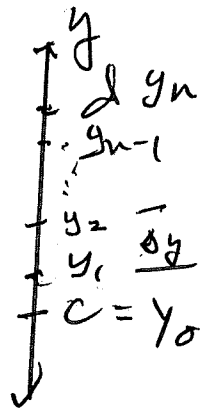 y
d yn
yn-1
y2
y1 Δy
C = y0